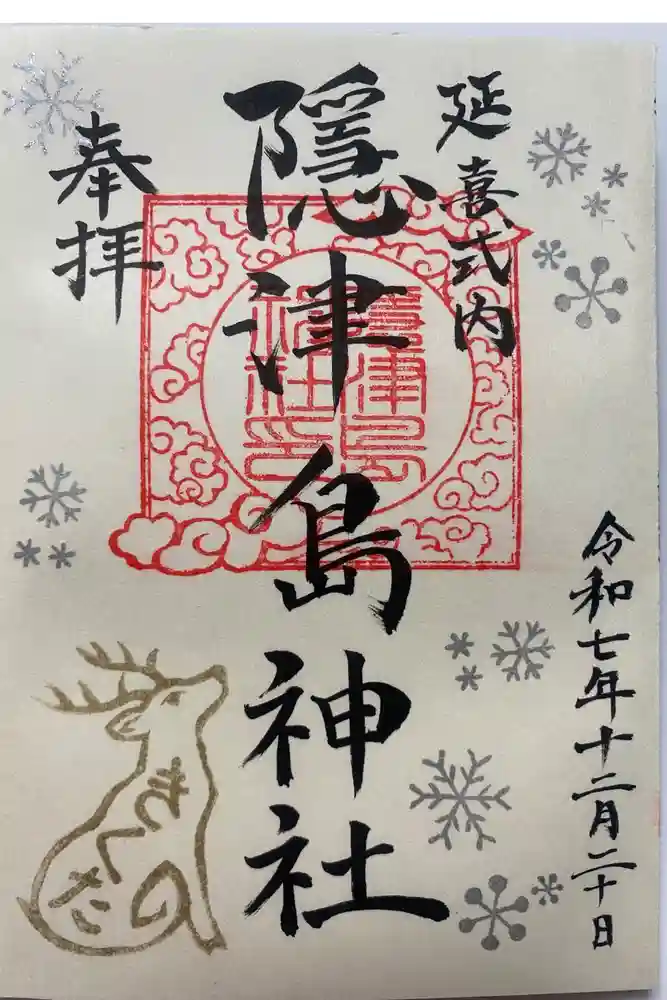 延喜式内
隠津島神社
奉拝
令和七年十二月二十日
隠津島
神社印
きくた